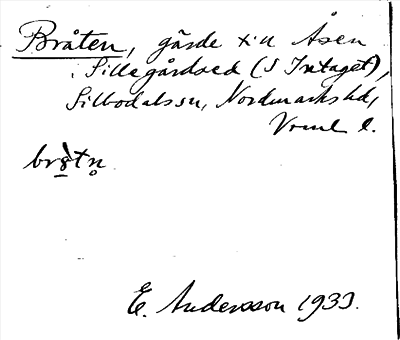 Bråten, gärde till Åsen
i Sillegårdsed (S Intaget),
Silbodals sn, Nordmarks hd,
Vrml l.
brǫ̀tn̥
E. Andersson 1933.